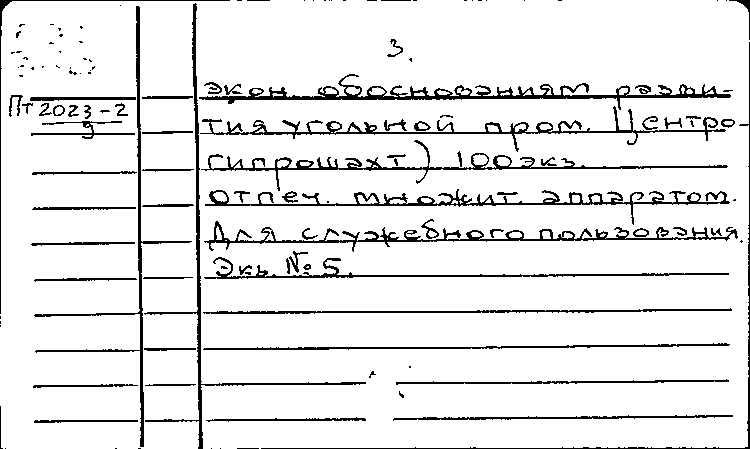 3.
экон. обоснованиям разви-
Пт 2023-2
9
тия угольной пром. Центро-
гипрошахт) 100 экз.
отпеч. множит. аппаратом.
Для служебного пользования.
Экз. № 5.